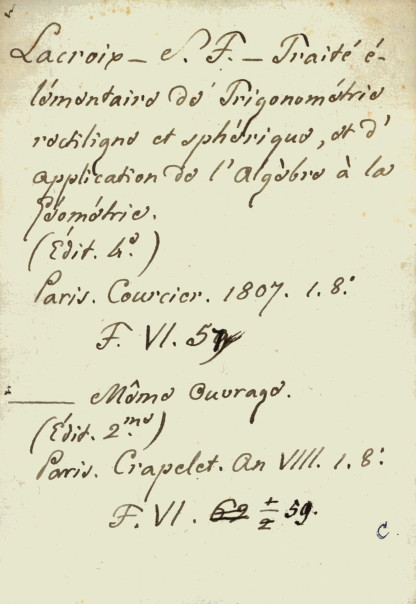 Lacroix – S. F. – Traité é-
lémentaire de Trigonométrie
rectiligne et sphérique, et d'
application de l'Algèbre à la
Géométrie.
(Édit. 4.e)
Paris. Courcier. 1807. 1. 8.o
F. VI. 57
——— Même Ouvrage.
(Édit. 2.me)
Paris. Crapelet. An VIII. 1. 8.o
F. VI. 59.
C